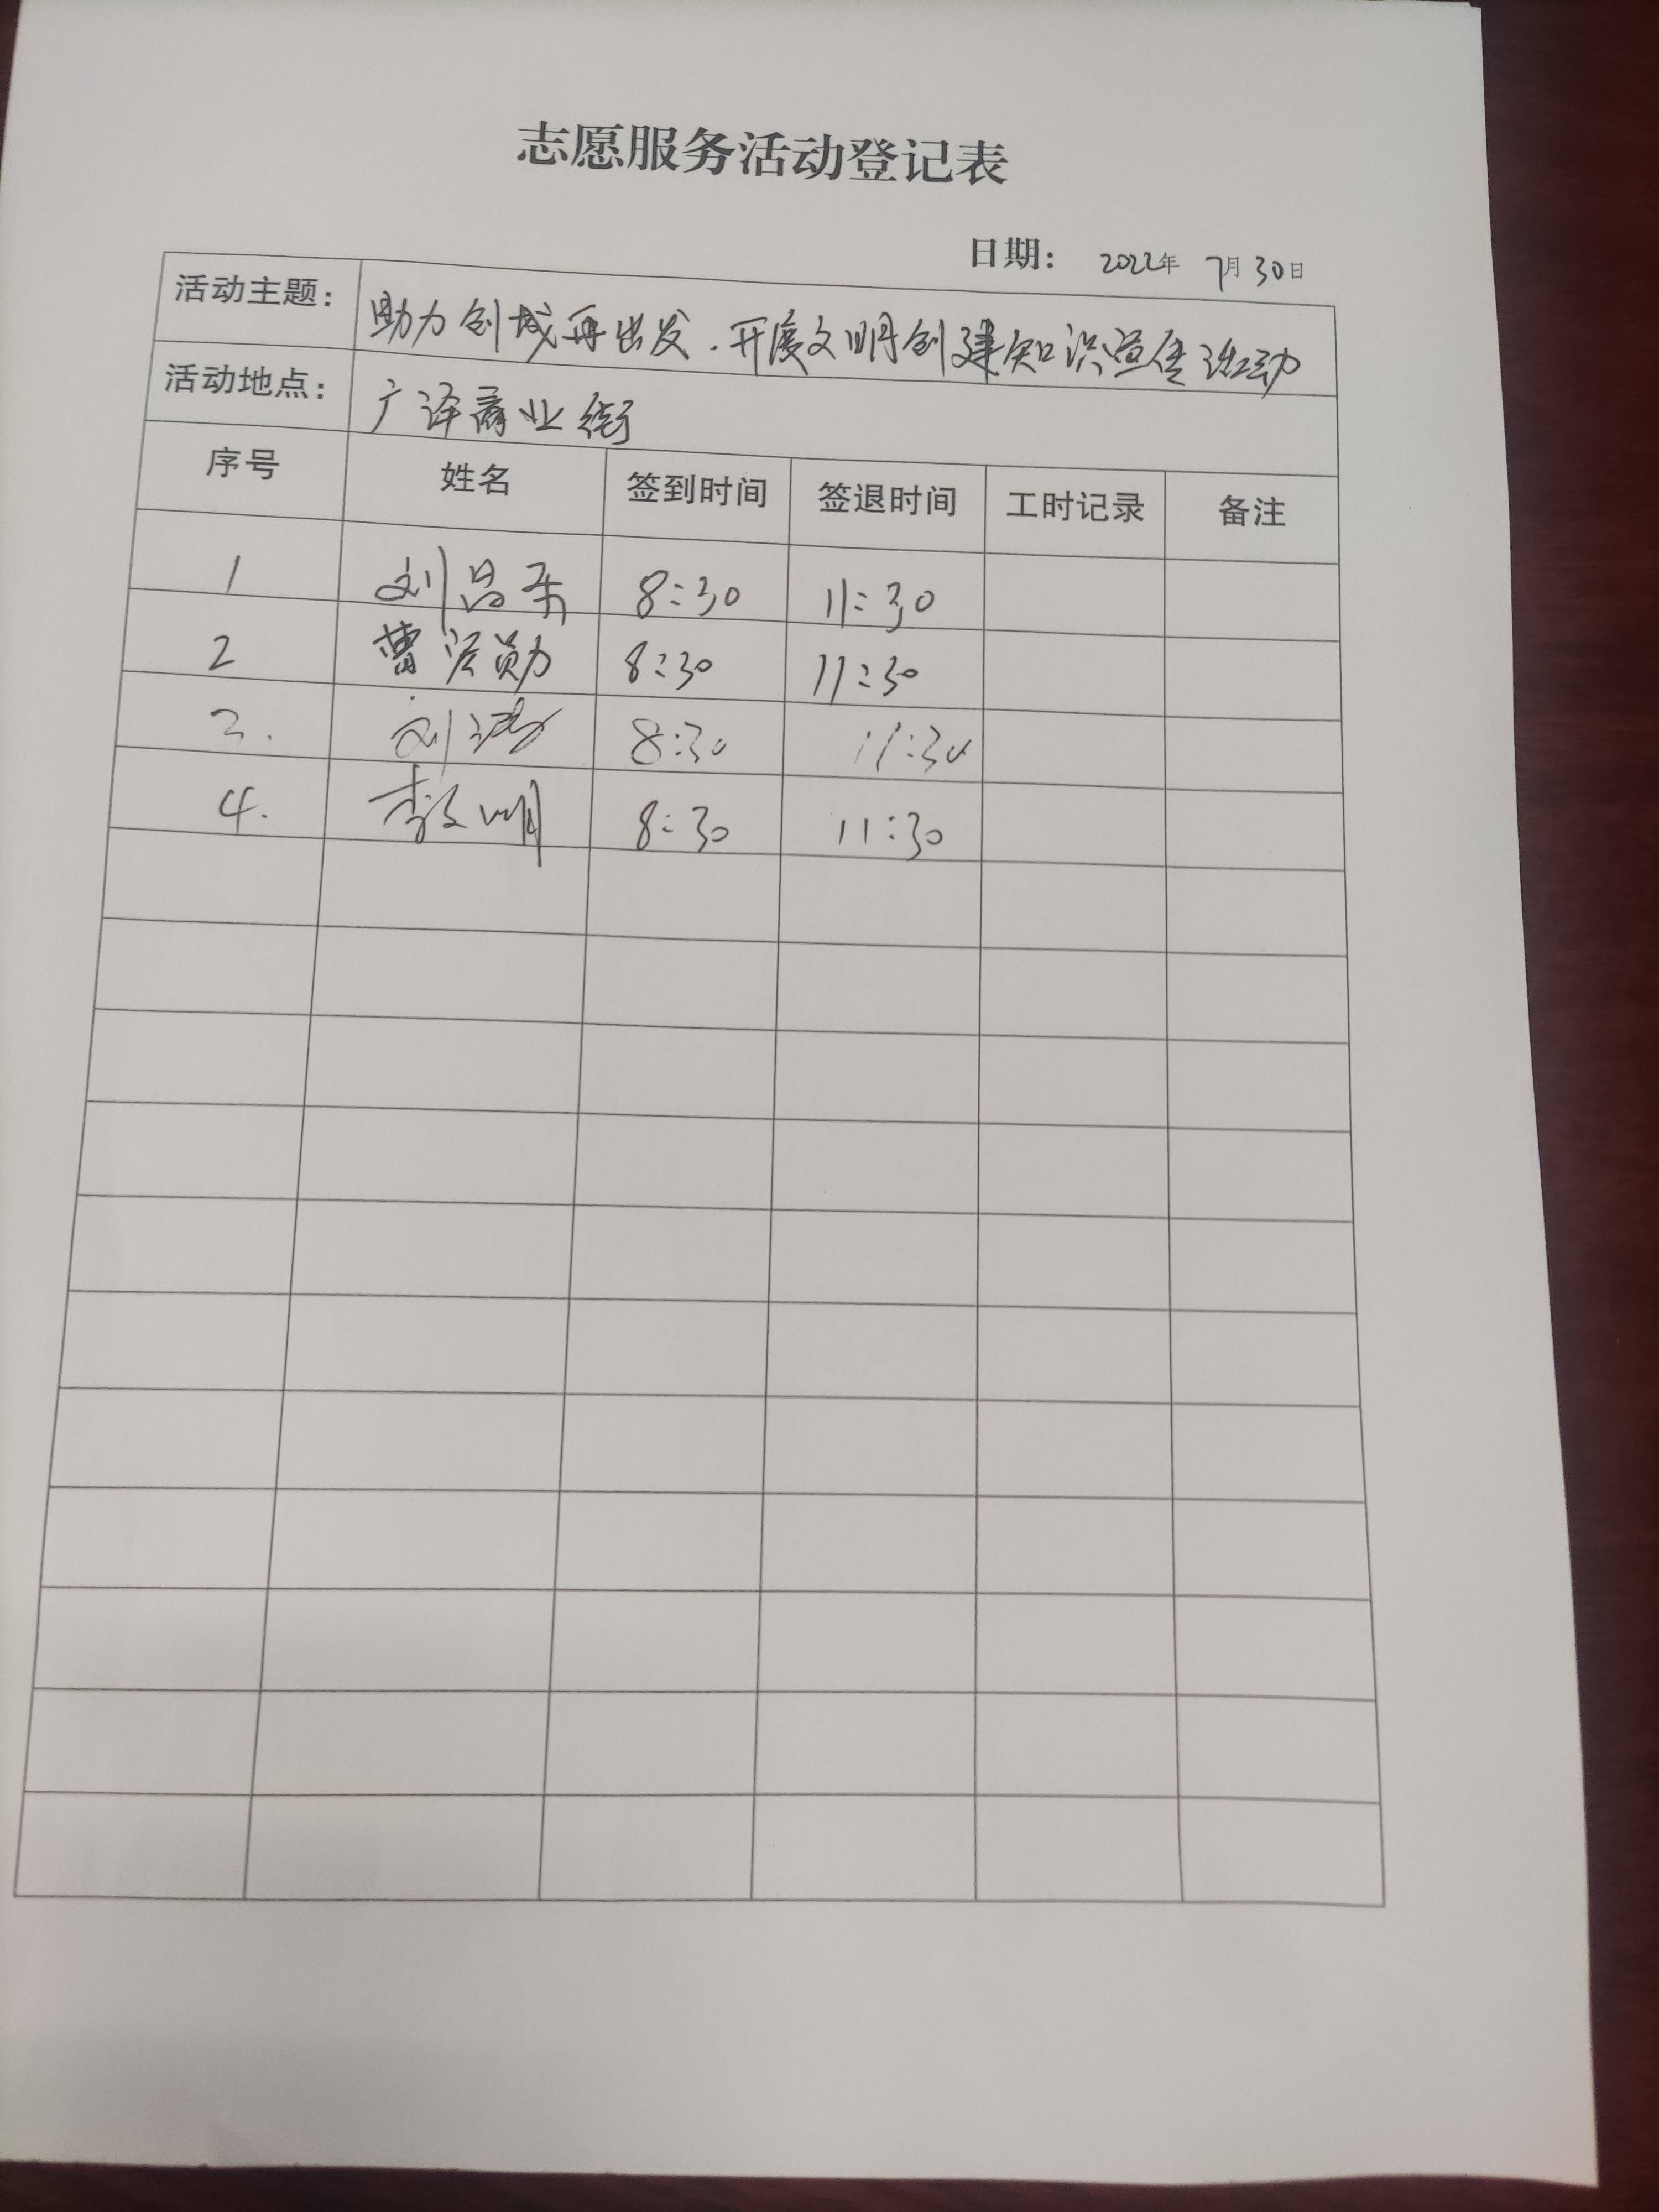 志愿服务活动登记表
日期： 2022年 7月 30日
活动主题： 助力创城再出发.开展文明创建知识宣传活动
活动地点： 广泽商业街
序号 姓名 签到时间 签退时间 工时记录 备注
1 刘昌 8:30 11:30
2 曹 勋 8:30 11:30
3. 刘涛 8:30 11:30
4. 明 8:30 11:30